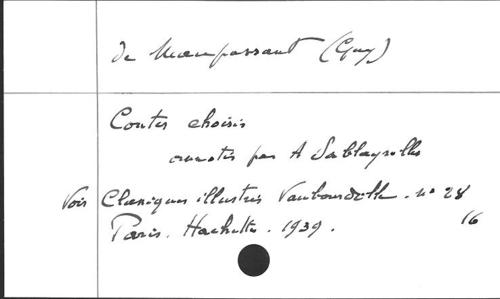 de Maupassant (Guy)
Contes choisis
annotés par A Sablayrolles
Voir Classiques illustrés Vaubourdolle. n° 28
Paris. Hachette. 1939.
16